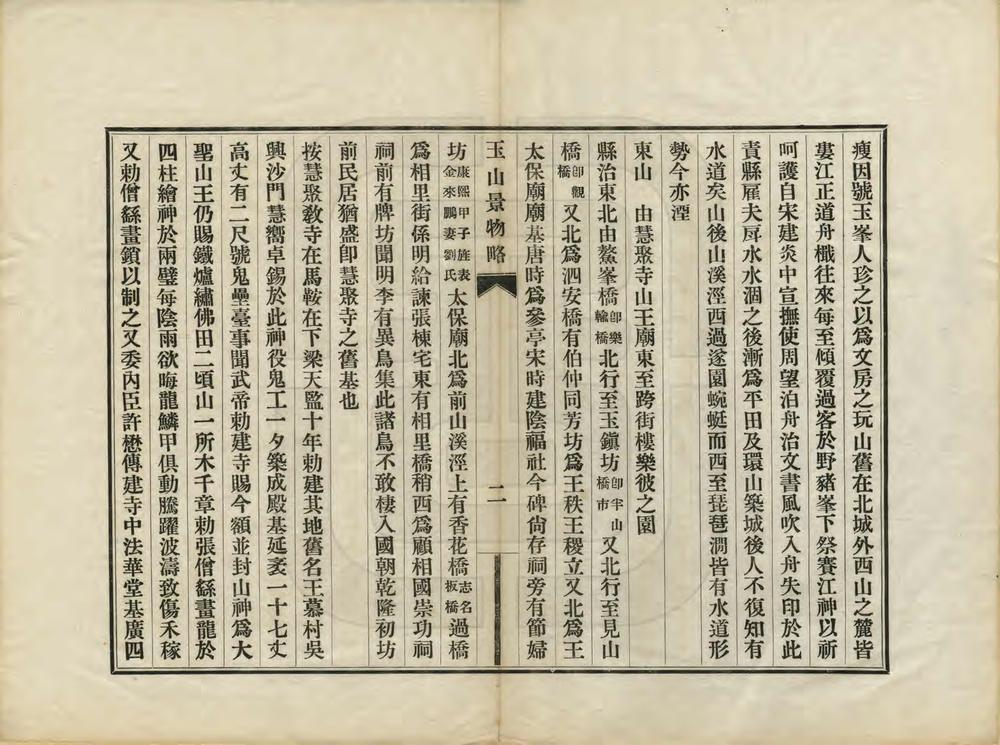 瘦因號玉峯人珍之以爲文房之玩山舊在北城外西山之麓皆
婁江正道舟檝往來每至傾覆過客於野豬峯下祭賽江神以祈
呵護自宋建炎中宣撫使周望泊舟治文書風吹入舟失印於此
責縣雇夫戽水水涸之後漸爲平田及環山築城後人不復知有
水道矣山後山溪涇西過遂園蜿蜒而西至琵琶澗皆有水道形
勢今亦湮
東山　由慧聚寺山王廟東至跨街樓樂彼之園
縣治東北由鰲峯橋卽樂輸橋北行至玉鎭坊卽半山橋市又北行至見山
橋卽觀橋又北爲泗安橋有伯仲同芳坊爲王秩王稷立又北爲王
太保廟廟基唐時爲參亭宋時建陰福社今碑尙存祠旁有節婦
玉山景物略　二
坊康熙甲子旌表金來鵬妻劉氏太保廟北爲前山溪涇上有香花橋志名板橋過橋
爲相里街係明給諫張棟宅東有相里橋稍西爲顧相國崇功祠
祠前有牌坊聞明季有異鳥集此諸鳥不敢棲入國朝乾隆初坊
前民居猶盛卽慧聚寺之舊基也
按慧聚敎寺在馬鞍在下梁天監十年勅建其地舊名王慕村吳
興沙門慧嚮卓錫於此神役鬼工一夕築成殿基延袤一十七丈
高丈有二尺號鬼壘臺事聞武帝勅建寺賜今額並封山神爲大
聖山王仍賜鐵爐繡佛田二頃山一所木千章勅張僧繇畫龍於
四柱繪神於兩璧每陰雨欲晦龍鱗甲俱動騰躍波濤致傷禾稼
又勅僧繇畫鎖以制之又委內臣許懋傳建寺中法華堂基廣四